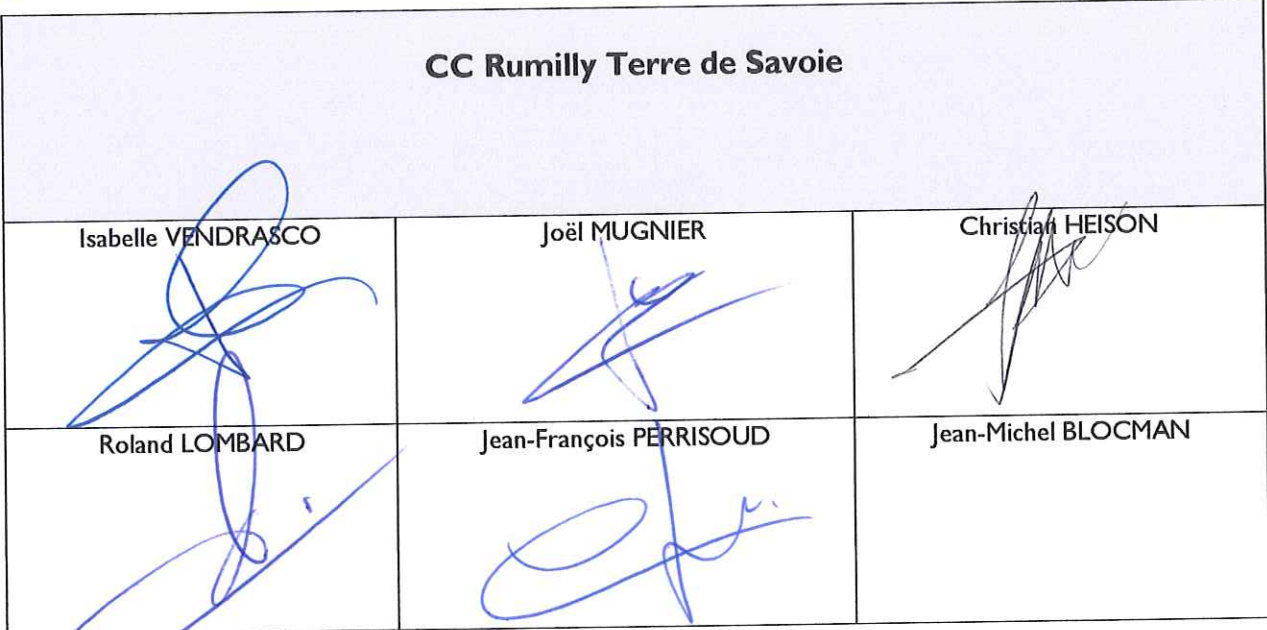 CC Rumilly Terre de Savoie
Isabelle VENDRASCO
Joël MUGNIER
Christian HEISON
Roland LOMBARD
Jean-François PERRISOUD
Jean-Michel BLOCMAN